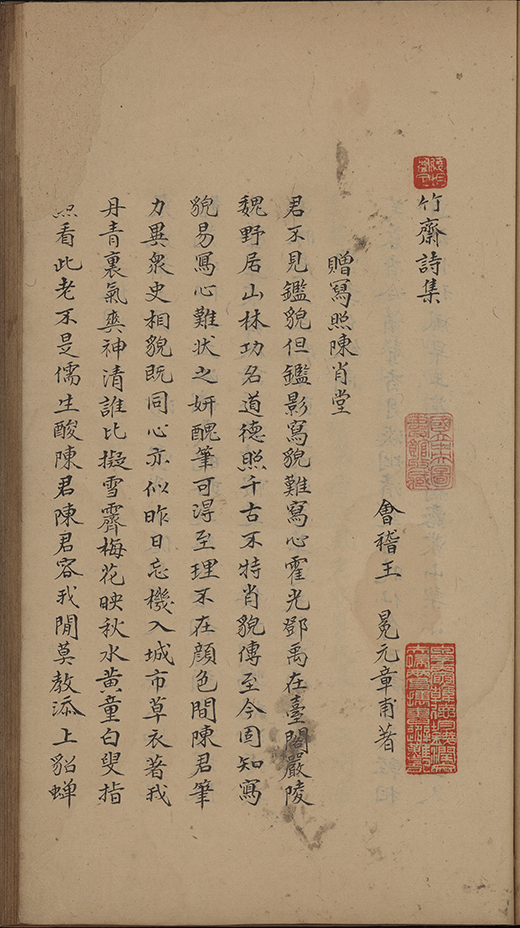 竹齋詩集
國立中央圖
書館收藏
會稽王　冕元章甫著
贈寫照陳肖堂
君不見鑑貌但鑑影寫貌難寫心霍光鄧禹在臺閣嚴陵
魏野居山林功名道德照千古不特肖貌傳至今固知寫
貌易寫心難狀之妍醜筆可得至理不在顔色間陳君筆
力異衆史相貌既同心亦似昨日忘機入城市草衣著我
丹青裏氣爽神清誰比擬雪霽梅花映秋水黃童白叟指
㸃看此老不是儒生酸陳君陳君容我閒莫教添上貂蟬